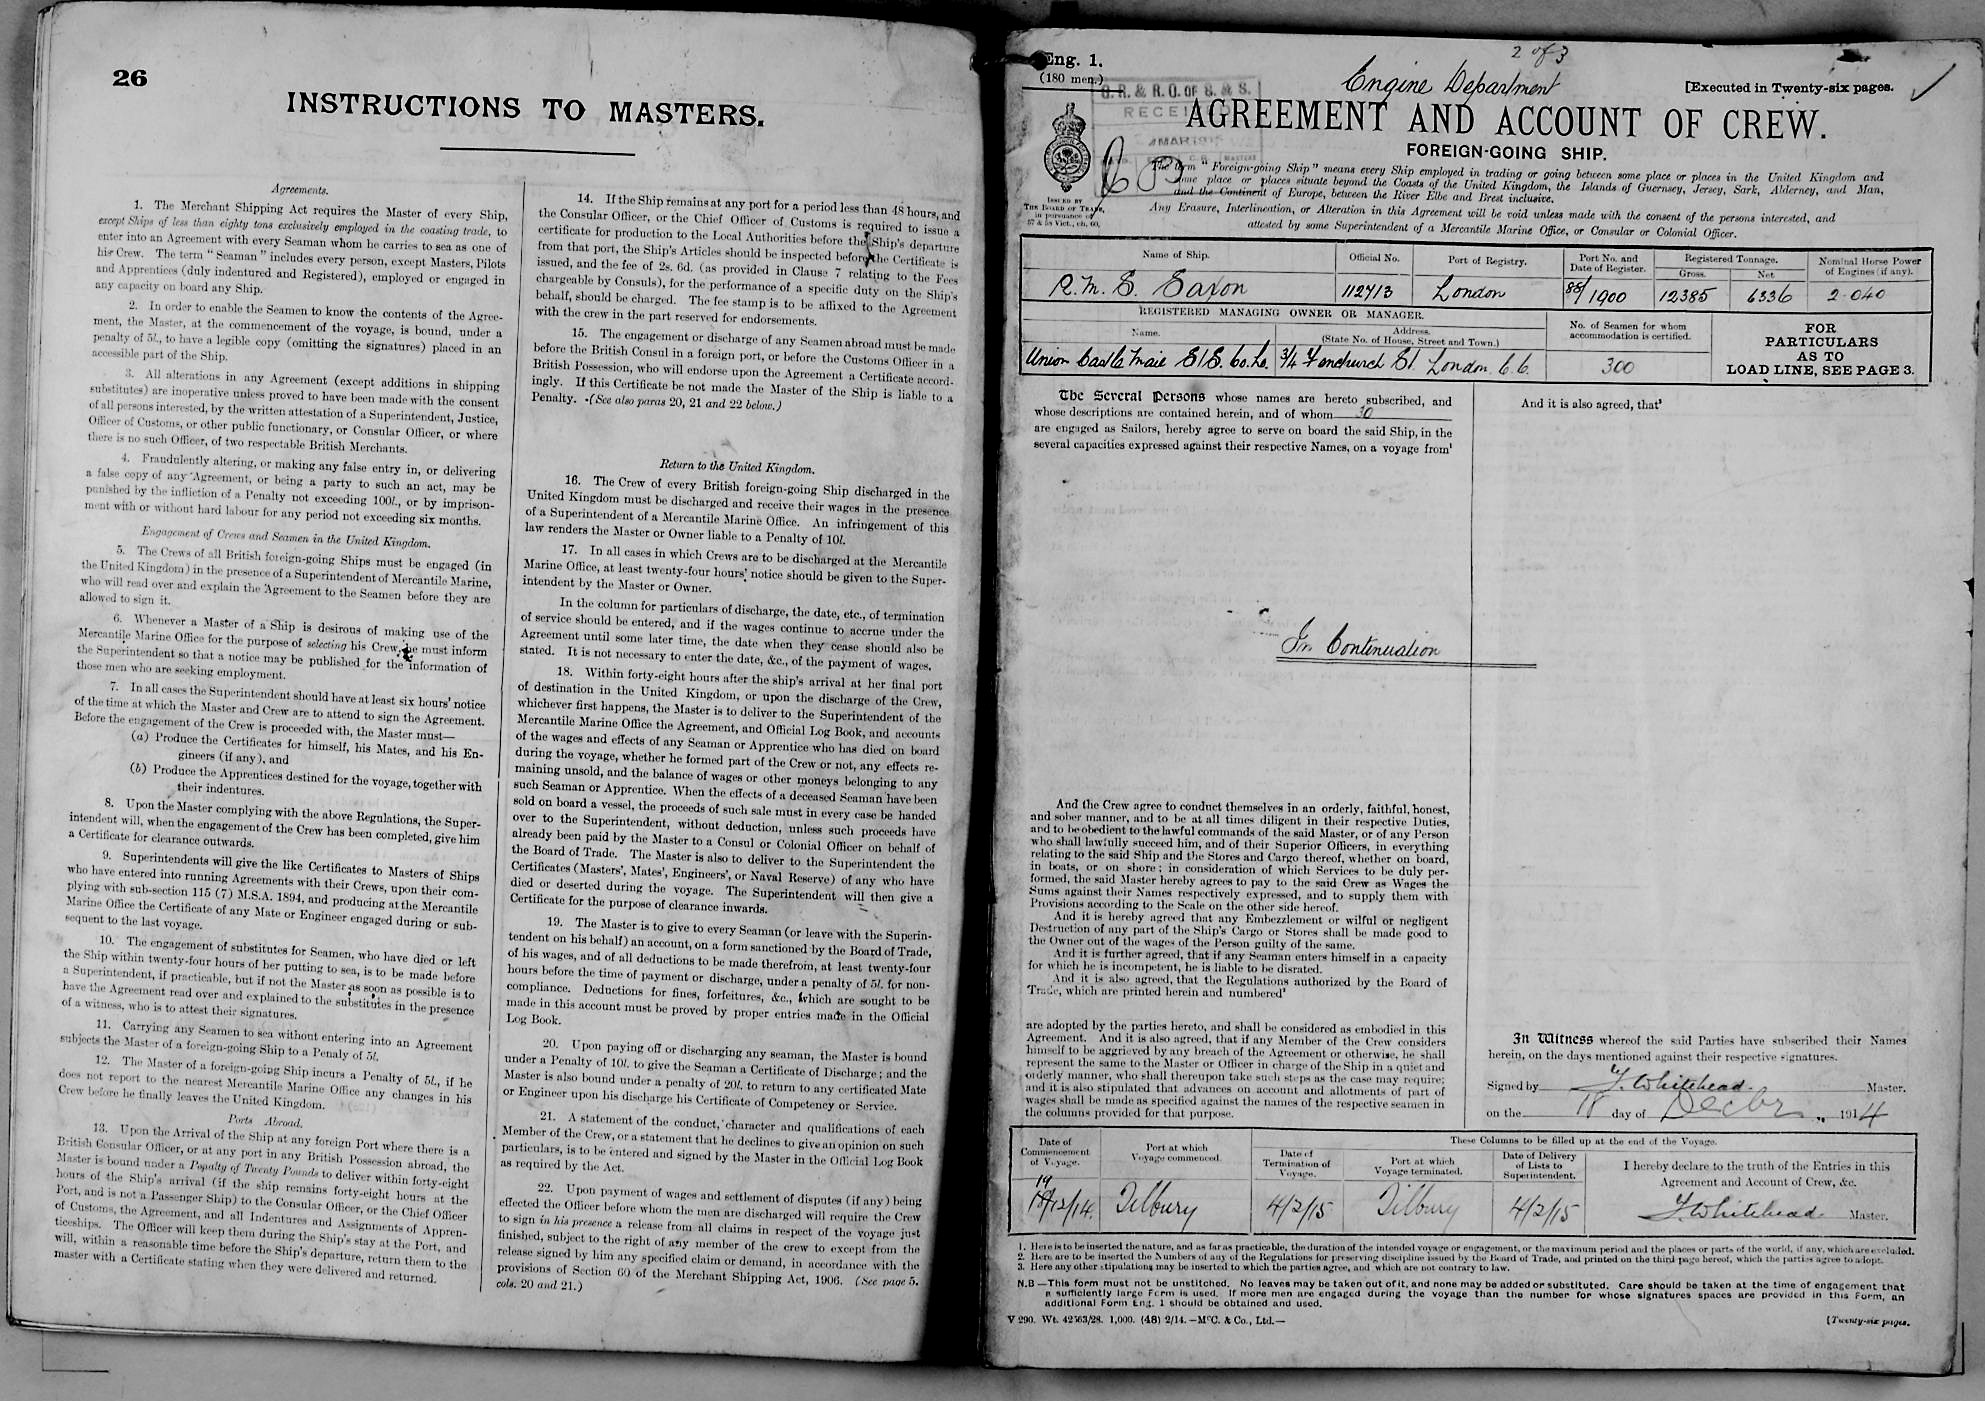 26
INSTRUCTIONS TO MASTERS.
Agreements.
1. The Merchant Shipping Act requires the Master of every Ship,
except Ships of less than eighty tons exclusively employed in the coasting trade, to
enter into an Agreement with every Seaman whom he carries to sea as one of
his Crew. The term "Seaman" includes every person, except Masters, Pilots
and Apprentices (duly indentured and Registered), employed or engaged in
any capacity on board any Ship.
2. In order to enable the Seamen to know the contents of the Agree-
ment, the Master, at the commencement of the voyage, is bound, under a
penalty of 5l., to have a legible copy (omitting the signatures) placed in an
accessible part of the Ship.
3. All alterations in any Agreement (except additions in shipping
substitutes) are inoperative unless proved to have been made with the consent
of all persons interested, by the written attestation of a Superintendent, Justice,
Officer of Customs, or other public functionary, or Consular Officer, or where
there is no such Officer, of two respectable British Merchants.
4. Fraudulently altering, or making any false entry in, or delivering
a false copy of any Agreement, or being a party to such an act, may be
punished by the infliction of a Penalty not exceeding 100l., or by imprison-
ment with or without hard labour for any period not exceeding six months.
Engagement of Crews and Seamen in the United Kingdom.
5. The Crews of all British foreign-going Ships must be engaged (in
the United Kingdom) in the presence of a Superintendent of Mercantile Marine,
who will read over and explain the Agreement to the Seamen before they are
allowed to sign it.
6. Whenever a Master of a Ship is desirous of making use of the
Mercantile Marine Office for the purpose of selecting his Crew, he must inform
the Superintendent so that a notice may be published for the information of
those men who are seeking employment.
7. In all cases the Superintendent should have at least six hours' notice
of the time at which the Master and Crew are to attend to sign the Agreement.
Before the engagement of the Crew is proceeded with, the Master must—
(a) Produce the Certificates for himself, his Mates, and his En-
gineers (if any), and
(b) Produce the Apprentices destined for the voyage, together with
their indentures.
8. Upon the Master complying with the above Regulations, the Super-
intendent will, when the engagement of the Crew has been completed, give him
a Certificate for clearance outwards.
9. Superintendents will give the like Certificates to Masters of Ships
who have entered into running Agreements with their Crews, upon their com-
plying with sub-section 115 (7) M.S.A. 1894, and producing at the Mercantile
Marine Office the Certificate of any Mate or Engineer engaged during or sub-
sequent to the last voyage.
10. The engagement of substitutes for Seamen, who have died or left
the Ship within twenty-four hours of her putting to sea, is to be made before
a Superintendent, if practicable, but if not the Master as soon as possible is to
have the Agreement read over and explained to the substitutes in the presence
of a witness, who is to attest their signatures.
11. Carrying any Seamen to sea without entering into an Agreement
subjects the Master of a foreign-going Ship to a Penaly of 5l.
12. The Master of a foreign-going Ship incurs a Penalty of 5l., if he
does not report to the nearest Mercantile Marine Office any changes in his
Crew before he finally leaves the United Kingdom.
Ports Abroad.
13. Upon the Arrival of the Ship at any foreign Port where there is a
British Consular Officer, or at any port in any British Possession abroad, the
Master is bound under a Penalty of Twenty Pounds to deliver within forty-eight
hours of the Ship's arrival (if the ship remains forty-eight hours at the
Port, and is not a Passenger Ship) to the Consular Officer, or the Chief Officer
of Customs, the Agreement, and all Indentures and Assignments of Appren-
ticeships. The Officer will keep them during the Ship's stay at the Port, and
will, within a reasonable time before the Ship's departure, return them to the
master with a Certificate stating when they were delivered and returned.
14. If the Ship remains at any port for a period less than 48 hours, and
the Consular Officer, or the Chief Officer of Customs is required to issue a
certificate for production to the Local Authorities before the Ship's departure
from that port, the Ship's Articles should be inspected before the Certificate is
issued, and the fee of 2s. 6d. (as provided in Clause 7 relating to the Fees
chargeable by Consuls), for the performance of a specific duty on the Ship's
behalf, should be charged. The fee stamp is to be affixed to the Agreement
with the crew in the part reserved for endorsements.
15. The engagement or discharge of any Seamen abroad must be made
before the British Consul in a foreign port, or before the Customs Officer in a
British Possession, who will endorse upon the Agreement a Certificate accord-
ingly. If this Certificate be not made the Master of the Ship is liable to a
Penalty. (See also paras 20, 21 and 22 below.)
Return to the United Kingdom.
16. The Crew of every British foreign-going Ship discharged in the
United Kingdom must be discharged and receive their wages in the presence
of a Superintendent of a Mercantile Marine Office. An infringement of this
law renders the Master or Owner liable to a Penalty of 10l.
17. In all cases in which Crews are to be discharged at the Mercantile
Marine Office, at least twenty-four hours' notice should be given to the Super-
intendent by the Master or Owner.
In the column for particulars of discharge, the date, etc., of termination
of service should be entered, and if the wages continue to accrue under the
Agreement until some later time, the date when they cease should also be
stated. It is not necessary to enter the date, &c., of the payment of wages.
18. Within forty-eight hours after the ship's arrival at her final port
of destination in the United Kingdom, or upon the discharge of the Crew,
whichever first happens, the Master is to deliver to the Superintendent of the
Mercantile Marine Office the Agreement, and Official Log Book, and accounts
of the wages and effects of any Seaman or Apprentice who has died on board
during the voyage, whether he formed part of the Crew or not, any effects re-
maining unsold, and the balance of wages or other moneys belonging to any
such Seaman or Apprentice. When the effects of a deceased Seaman have been
sold on board a vessel, the proceeds of such sale must in every case be handed
over to the Superintendent, without deduction, unless such proceeds have
already been paid by the Master to a Consul or Colonial Officer on behalf of
the Board of Trade. The Master is also to deliver to the Superintendent the
Certificates (Masters', Mates', Engineers', or Naval Reserve) of any who have
died or deserted during the voyage. The Superintendent will then give a
Certificate for the purpose of clearance inwards.
19. The Master is to give to every Seaman (or leave with the Superin-
tendent on his behalf) an account, on a form sanctioned by the Board of Trade,
of his wages, and of all deductions to be made therefrom, at least twenty-four
hours before the time of payment or discharge, under a penalty of 5l. for non-
compliance. Deductions for fines, forfeitures, &c., which are sought to be
made in this account must be proved by proper entries made in the Official
Log Book.
20. Upon paying off or discharging any seaman, the Master is bound
under a Penalty of 10l. to give the Seaman a Certificate of Discharge; and the
Master is also bound under a penalty of 20l. to return to any certificated Mate
or Engineer upon his discharge his Certificate of Competency or Service.
21. A statement of the conduct, character and qualifications of each
Member of the Crew, or a statement that he declines to give an opinion on such
particulars, is to be entered and signed by the Master in the Official Log Book
as required by the Act.
22. Upon payment of wages and settlement of disputes (if any) being
effected the Officer before whom the men are discharged will require the Crew
to sign in his presence a release from all claims in respect of the voyage just
finished, subject to the right of any member of the crew to except from the
release signed by him any specified claim or demand, in accordance with the
provisions of Section 60 of the Merchant Shipping Act, 1906. (See page 5.
cols. 20 and 21.)
2 of 3
Eng. 1.
(180 men.)
Engine Department
[Executed in Twenty-six pages.
G. R. & R. O. OF S. & S.
4 MAR 1915
AGREEMENT AND ACCOUNT OF CREW.
FOREIGN-GOING SHIP.
The term "Foreign-going Ship" means every Ship employed in trading or going between some place or places in the United Kingdom and
some place or places situate beyond the Coasts of the United Kingdom, the Islands of Guernsey, Jersey, Sark, Alderney, and Man,
and the Continent of Europe, between the River Elbe and Brest inclusive.
ISSUED BY
THE BOARD OF TRADE,
in pursuance of
57 & 58 Vict., ch. 60.
Any Erasure, Interlineation, or Alteration in this Agreement will be void unless made with the consent of the persons interested, and
attested by some Superintendent of a Mercantile Marine Office, or Consular or Colonial Officer.
Name of Ship. Official No. Port of Registry. Port No. and Date of Register. Registered Tonnage. Gross. Net Nominal Horse Power of Engines (if any).
R.M.S. Saxon 112713 London 88/1900 12385 6336 2.040
REGISTERED MANAGING OWNER OR MANAGER.
Name. Address. (State No. of House, Street and Town.) No. of Seamen for whom accommodation is certified.
Union Castle Mail S/S. Co. Ld. 3/4 Fenchurch St. London E.C. 300
FOR
PARTICULARS
AS TO
LOAD LINE, SEE PAGE 3.
The Several Persons whose names are hereto subscribed, and
whose descriptions are contained herein, and of whom 30
are engaged as Sailors, hereby agree to serve on board the said Ship, in the
several capacities expressed against their respective Names, on a voyage from¹
And it is also agreed, that³
In Continuation
And the Crew agree to conduct themselves in an orderly, faithful, honest,
and sober manner, and to be at all times diligent in their respective Duties,
and to be obedient to the lawful commands of the said Master, or of any Person
who shall lawfully succeed him, and of their Superior Officers, in everything
relating to the said Ship and the Stores and Cargo thereof, whether on board,
in boats, or on shore; in consideration of which Services to be duly per-
formed, the said Master hereby agrees to pay to the said Crew as Wages the
Sums against their Names respectively expressed, and to supply them with
Provisions according to the Scale on the other side hereof.
And it is hereby agreed that any Embezzlement or wilful or negligent
Destruction of any part of the Ship's Cargo or Stores shall be made good to
the Owner out of the wages of the Person guilty of the same.
And it is further agreed, that if any Seaman enters himself in a capacity
for which he is incompetent, he is liable to be disrated.
And it is also agreed, that the Regulations authorized by the Board of
Trade, which are printed herein and numbered²
are adopted by the parties hereto, and shall be considered as embodied in this
Agreement. And it is also agreed, that if any Member of the Crew considers
himself to be aggrieved by any breach of the Agreement or otherwise, he shall
represent the same to the Master or Officer in charge of the Ship in a quiet and
orderly manner, who shall thereupon take such steps as the case may require;
and it is also stipulated that advances on account and allotments of part of
wages shall be made as specified against the names of the respective seamen in
the columns provided for that purpose.
In Witness whereof the said Parties have subscribed their Names
herein, on the days mentioned against their respective signatures.
Signed by J. Whitehead Master.
on the 18 day of Decbr 1914
These Columns to be filled up at the end of the Voyage.
Date of Commencement of Voyage. Port at which Voyage commenced. Date of Termination of Voyage. Port at which Voyage terminated. Date of Delivery of Lists to Superintendent. I hereby declare to the truth of the Entries in this Agreement and Account of Crew, &c.
19/12/14. Tilbury 4/2/15 Tilbury 4/2/15 J. Whitehead Master.
1. Here is to be inserted the nature, and as far as practicable, the duration of the intended voyage or engagement, or the maximum period and the places or parts of the world, if any, which are excluded.
2. Here are to be inserted the Numbers of any of the Regulations for preserving discipline issued by the Board of Trade, and printed on the third page hereof, which the parties agree to adopt.
3. Here any other stipulations may be inserted to which the parties agree, and which are not contrary to law.
N.B.—This form must not be unstitched. No leaves may be taken out of it, and none may be added or substituted. Care should be taken at the time of engagement that
a sufficiently large Form is used. If more men are engaged during the voyage than the number for whose signatures spaces are provided in this Form, an
additional Form Eng. 1 should be obtained and used.
V 290. Wt. 42563/28. 1,000. (48) 2/14.—McC. & Co., Ltd.—
[Twenty-six pages.